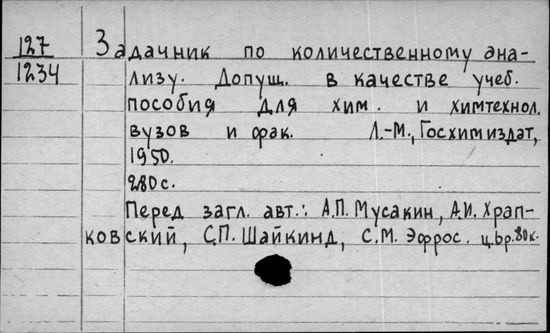 127 Задачник по количественному ана-
1234 лизу. Допущ. в качестве учеб.
пособия для хим. и химтехнол.
вузов и фак. Л.-М., Госхимиздат,
1950.
280с.
Перед загл. авт.: А.П. Мусакин, А.И. Храп-
ковский, С.П. Шайкинд, С.М. Эфрос. ц.6р.80к.